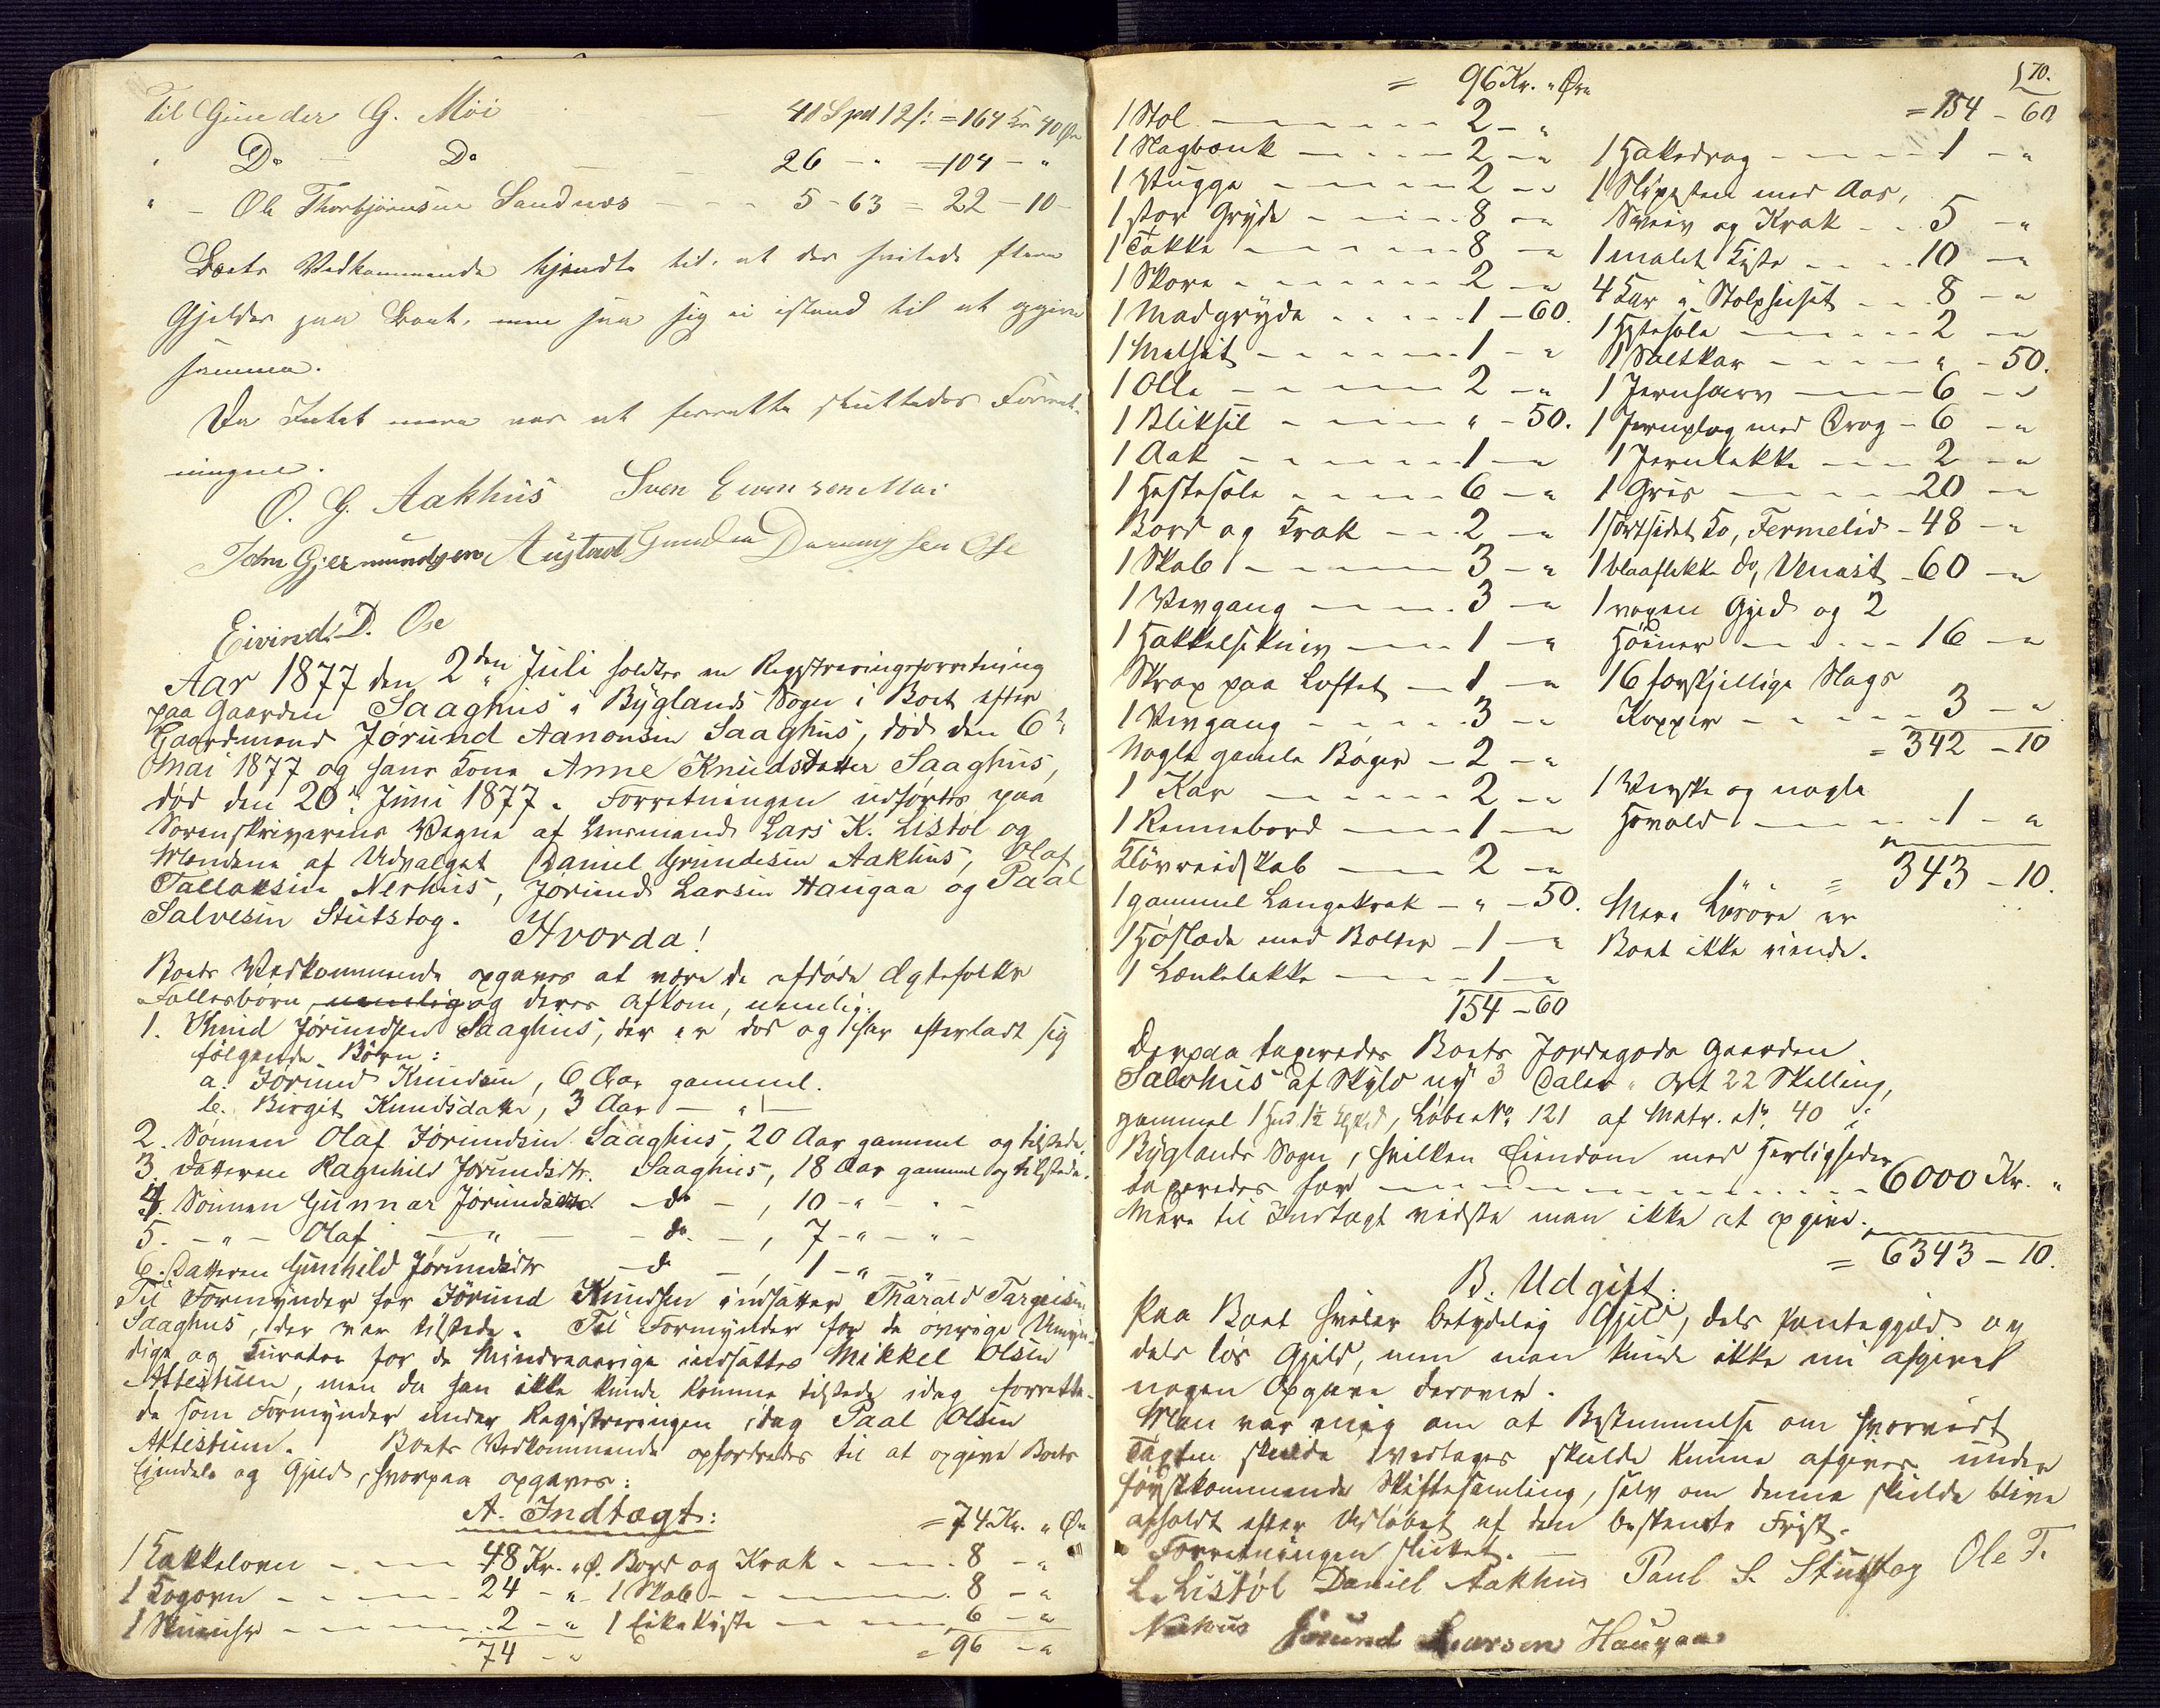 Til Gunder G. Moi — 41 Spd 12 s: = 164 Kr 40 Øre
" Do — Do — 26 — " = 104 — "
" — Ole Thorbjørnsen Sandnæs — 5 - 63 = 22 — 10
Boets Vedkommende kjendte til, at der hvilede flere
Gjelder paa Boet, men saa sig ei istand til at opgive
samme.
Da Intet mere var at forrette sluttedes Forret-
ningen.
O. G. Aakhus Sven Evensen Moi
John Gjermundsen Austad Gunder Ose
Eivind D. Ose
Aar 1877 den 2den Juli holdtes en Registreringsforretning
paa Gaarden Saaghus i Byglands Sogn i Boet efter
Gaardmand Jørund Aanonsen Saaghus, død den 6te
Mai 1877 og hans Kone Anne Knudsdatter Saaghus,
død den 20de Juni 1877. Forretningen udførtes paa
Sorenskriverens Vegne af Lensmand Lars K. Listøl og
Mændene af Udvalget Daniel Gundersen Aakhus, Olaf
Tallaksen Nerhus, Jørund Larsen Haugaa og Paal
Salvesen Stutstog.
Hvorda!
Boets Vedkommende opgaves at være de afdøde Ægtefolks
Fællesbørn nemlig og deres Afkom, nemlig:
1. Knud Jørundsen Saaghus, der er død og har efterladt sig
følgende Børn:
a. Jørund Knudsen, 6 Aar gammel.
b. Birgit Knudsdatter, 3 Aar — " —
2. Sønnen Olaf Jørundsen Saaghus, 20 Aar gammel og tilstede.
3. Datteren Ragnhild Jørundsdtr. Saaghus, 18 Aar gammel og tilstede.
4. Sønnen Gunnar Jørundsen — do —, 10 — " — " —
5. — " — Olaf — " — do. —, 7 — " — " —
6. Datteren Gunhild Jørundsdtr — do —, 1 — " — " —
Til Formynder for Jørund Knudsen indsattes Tharald Targeisen
Saaghus, der var tilstede. Til Formynder for de øvrige Umyn-
dige og Kurator for de Mindreaarige indsattes Mikkel Olsen
Attestuen, men da han ikke kunde komme tilstede idag forrette-
de som Formynder under Registreringen idag Paal Olsen
Attestuen. Boets Vedkommende opfordredes til at opgive Boets
Eiendele og Gjeld, hvorpaa opgaves:
A. Indtægt:
1 Kakkelovn — 48 Kr. " Ø.
1 Kogovn — 24 — "
1 — 2 — "
74 — "
= 74 Kr. " Øre
Bord og Krak — 8 — "
1 Skab — 8 — "
1 Eikekiste — 6 — "
= 96 — "
70.
= 96 Kr. " Øre
1 Stol — 2 — "
1 Slagbænk — 2 — "
1 Vugge — 2 — "
1 stor Gryde — 8 — "
1 Takke — 8 — "
1 Skore — 2 — "
1 Madgryde — 1 — 60.
1 — 1 — "
1 Olle — 2 — "
1 Bliksil — " — 50.
1 Aak — 1 — "
1 Hestesele — 6 — "
Bord og Krak — 2 — "
1 Skab — 3 — "
1 Vevgang — 3 — "
1 Hakkelsekniv — 1 — "
Skrap paa Loftet — 1 — "
1 Vevgang — 3 — "
Nogle gamle Bøger — 2 — "
1 Kar — 2 — "
1 Rennebord — 1 — "
Kløvreidskab — 2 — "
1 gammel Langekrak — " — 50.
1 Høslæde med Bolter — 1 — "
1 Lænkelekke — 1 — "
154 — 60
= 154 — 60
1 Hakedrag — 1 — "
1 Slipesten med Aas,
Sveiv og Krak — 5 — "
1 malet Kiste — 10 — "
4 Kar i Stolphuset — 8 — "
1 — 2 — "
1 Saltkar — " — 50.
1 Jernharv — 6 — "
1 Jernplog med Drag — 6 — "
1 Jernlekke — 2 — "
1 Gris — 20 — "
1 sortsidet Ko, Fermelid — 48 — "
1 blaaflekke do, Venast — 60 — "
1 voxen Gjed og 2
Høuner — 16 — "
16 forskjellige Slags
Kopper — 3 — "
= 342 — 10
1 Vevske og nogle
Hovold — 1 — "
= 343 — 10.
Mere Løsøre er
Boet ikke eiende.
Derpaa taxeredes Boets Jordegods Gaarden
Saaghus af Skyld ny 3 Daler " Ort 22 Skilling,
gammel 1 Hud 1½ , Løbe No. 121 af Matr. No. 40 i
Byglands Sogn, hvilken Eiendom med Herligheder
taxeredes for — 6000 Kr. "
Mere til Indtægt vidste man ikke at opgive.
= 6343 — 10.
B. Udgift:
Paa Boet hviler betydelig Gjeld, dels Pantegjeld og
dels løs Gjeld, men man kunde ikke nu afgivet
nogen Opgave derover.
Man var enig om at Bestemmelse om hvorvidt
Taxten skulde vedtages skulde kunne afgives under
førstkommende Skiftesamling, selv om denne skulde blive
afholdt efter Udløbet af den bestemte Frist.
Forretningen sluttet. —
L. Listøl Daniel Aakhus Paul S. Stutstog Ole T.
Nerhus Jorund Larsen Haugaa